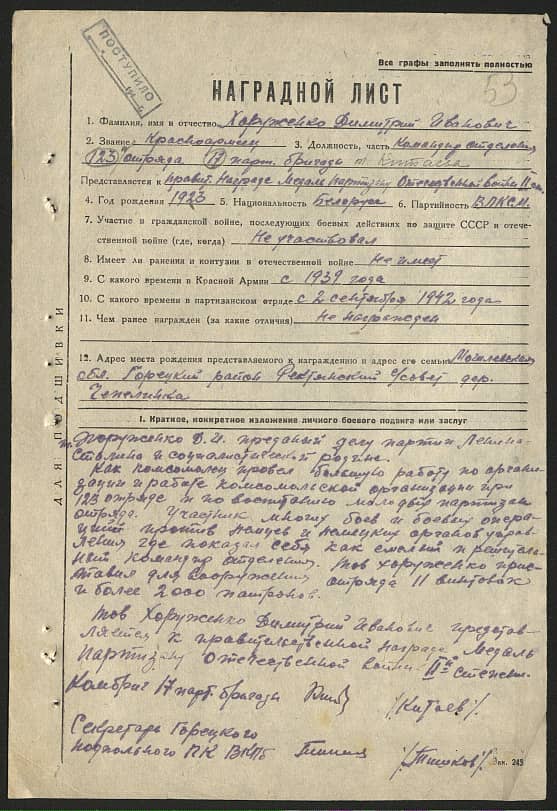 ПОСТУПИЛО
Все графы заполнять полностью
53
НАГРАДНОЙ ЛИСТ
1. Фамилия, имя и отчество Хоруженко Димитрий Иванович
2. Звание Красноармеец 3. Должность, часть Командир отделения
123 отряда 17 парт. бригады т. Китаева
Представляется к правит. награде Медаль партизану Отечественной войны II степ.
4. Год рождения 1923 5. Национальность Белорус 6. Партийность ВЛКСМ
7. Участие в гражданской войне, последующих боевых действиях по защите СССР и отече-
ственной войне (где, когда) Не участвовал
8. Имеет ли ранения и контузии в отечественной войне не имеет
9. С какого времени в Красной Армии с 1939 года
10. С какого времени в партизанском отряде с 2 сентября 1942 года
11. Чем ранее награжден (за какие отличия) не награжден
12. Адрес места рождения представляемого к награждению и адрес его семьи Могилевская
обл. Горецкий район с/совет дер.
ДЛЯ ПОДШИВКИ
I. Краткое, конкретное изложение личного боевого подвига или заслуг
Хоруженко Д.И. преданый делу партии Ленина-
Сталина и социалистической родине.
Как комсомолец провел большую работу по органи-
зации и работе комсомольской организации при
123 отряде и по воспитанию молодых партизан
отряда. Участник многих боев и боевых опера-
ций против немцев и немецких органов управ-
ления где показал себя как смелый и решитель-
ный командир отделения. Тов Хоруженко прис-
тавил для вооружения отряда 11 винтовок
и более 2000 патронов.
Тов Хоруженко Димитрий Иванович представ-
ляется к правительственной награде Медаль
Партизану Отечественной войны II й степени.
Комбриг 17 парт. бригады /Китаев/.
Секретарь Горецкого
подпольного РК ВКПб /Тишков/.
Зак. 243